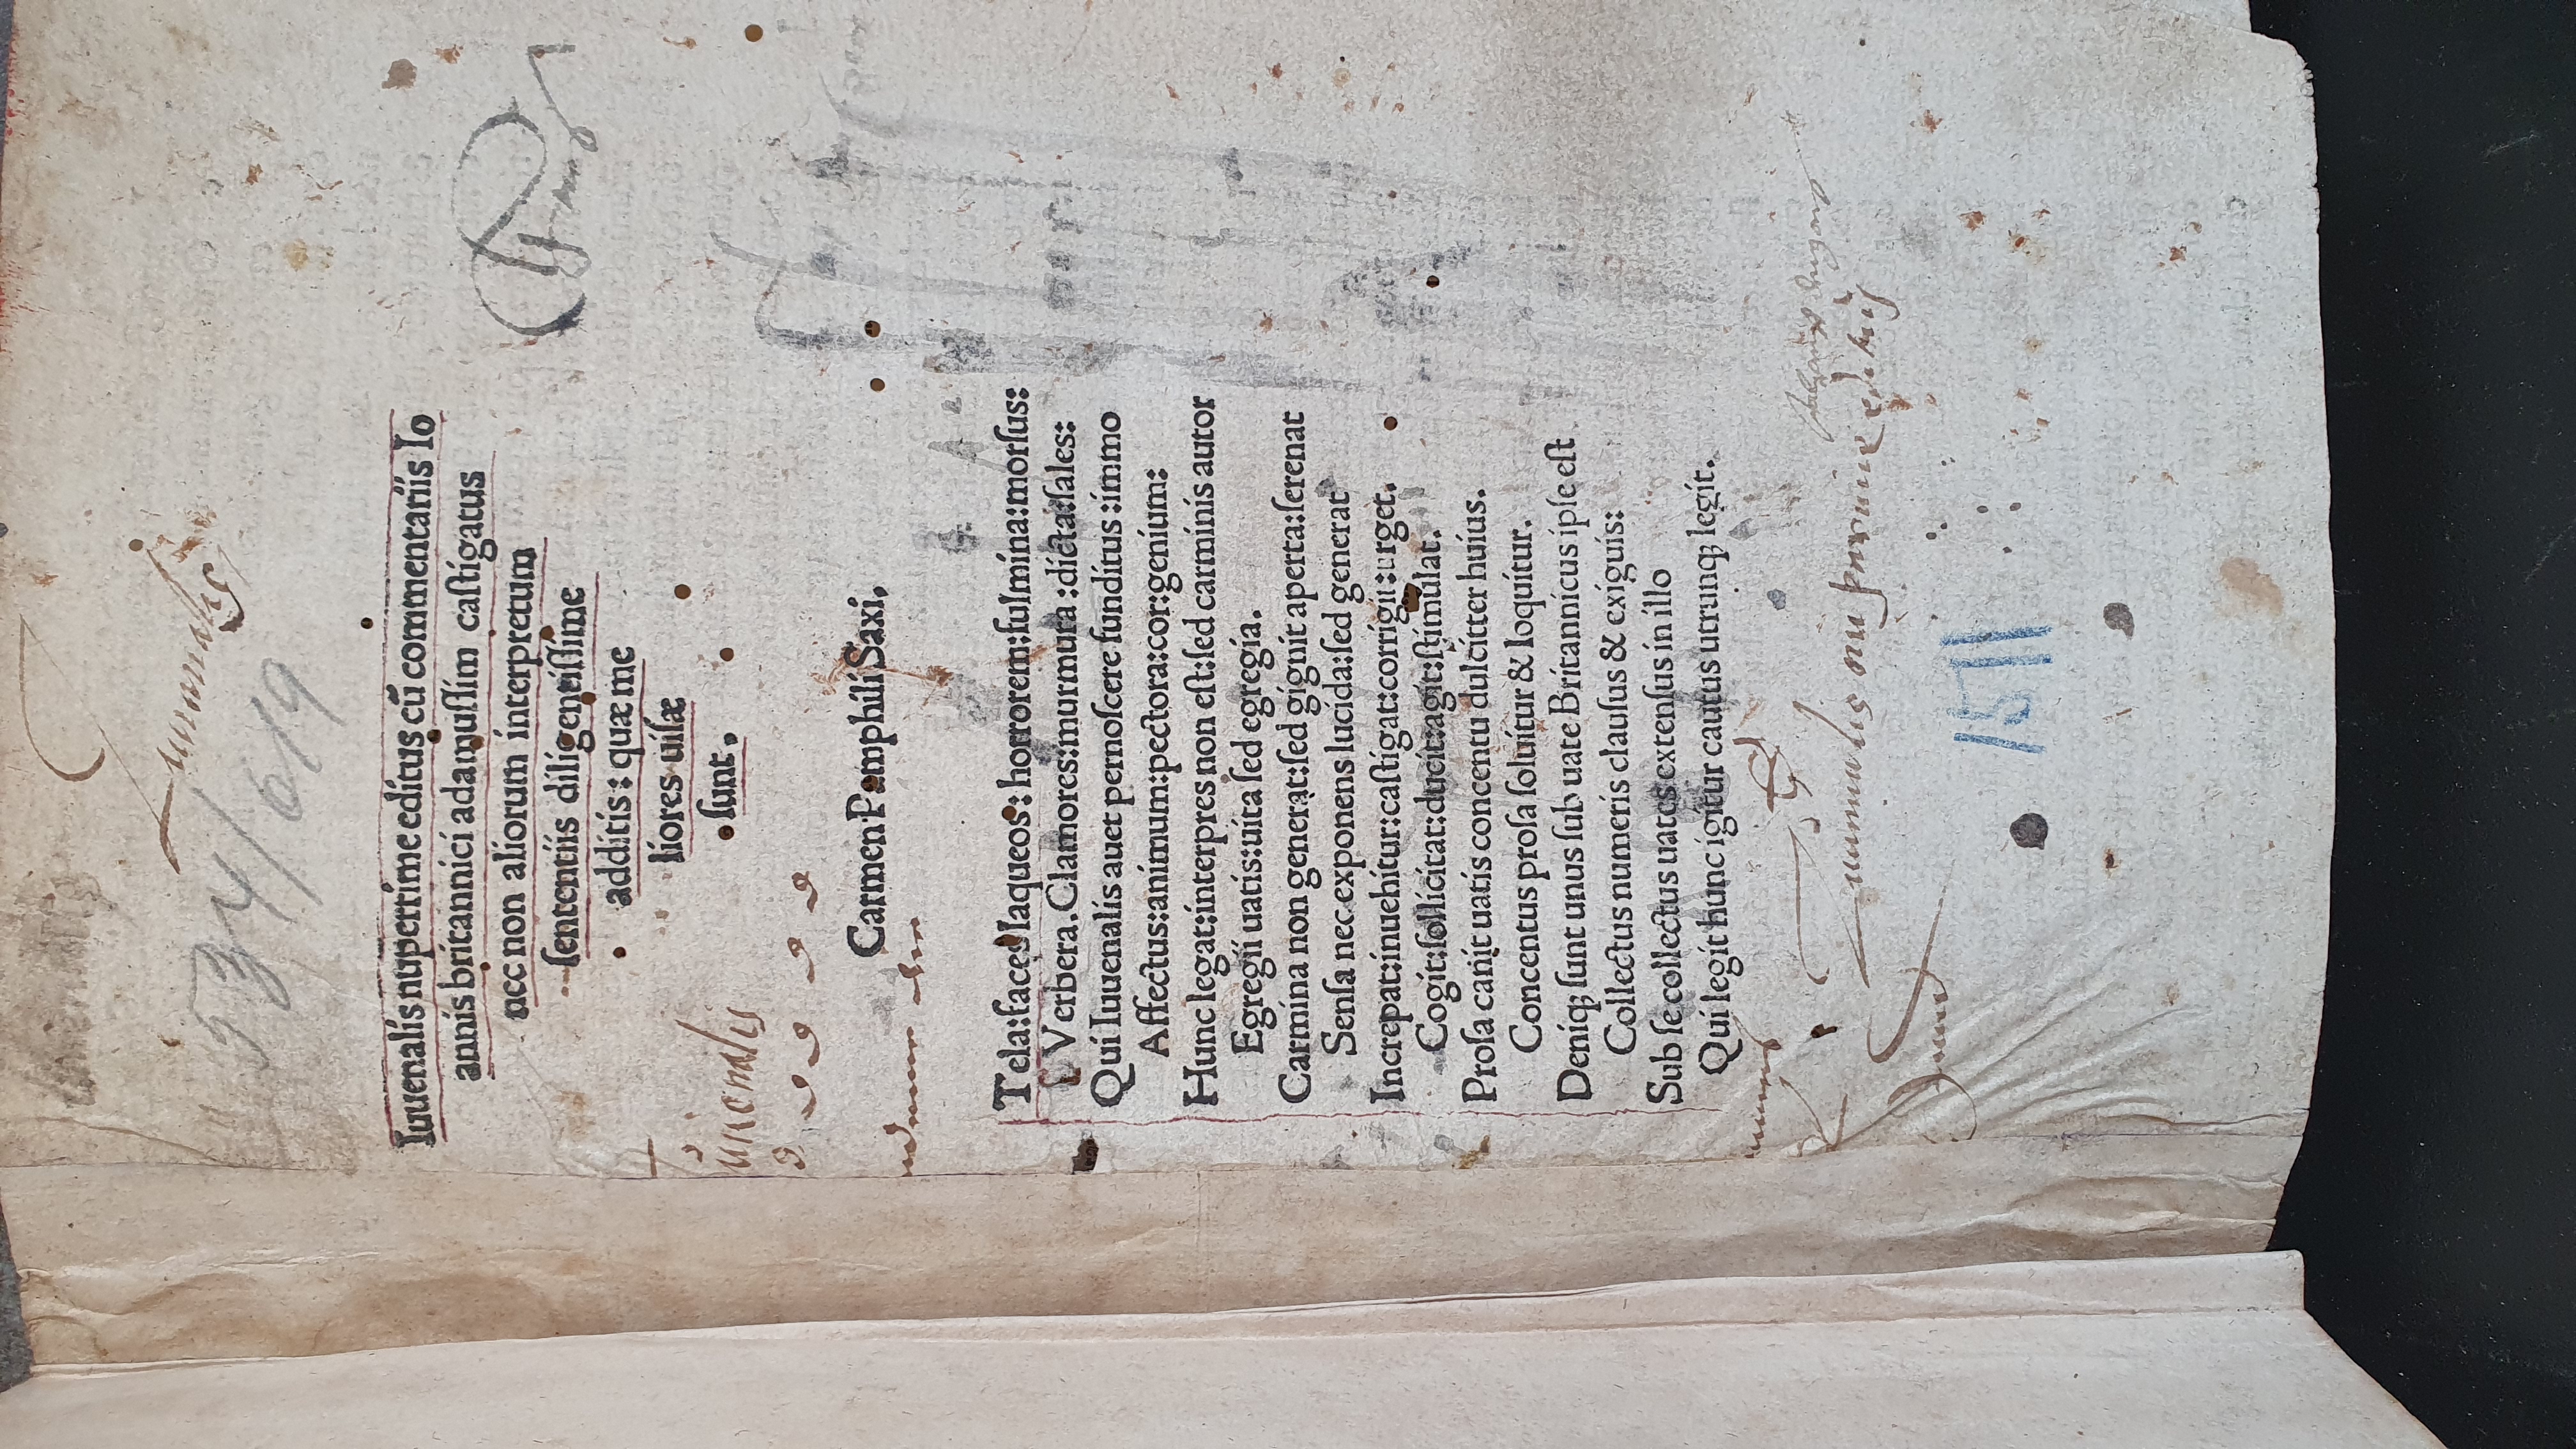 Juuenalis
534/619
Iuuenalis nuperrime editus cū commentariis Io
annis britannici adamuſſim caſtigatus
nec non aliorum interpretum
ſententiis diligentiſſime
additis: quæ me
liores uiſæ
ſunt.
uuenalis
Carmen Pamphili Saxi,
Tela:faces:laqueos: horrorem:fulmina:morſus:
Verbera.Clamores:murmura :dicta:ſales:
Qui Iuuenalis auet pernoſcere funditus :immo
Affectus:animum:pectora:cor:genium:
Hunc legat:interpres non eſt:ſed carminis autor
Egregii uatis:uita ſed egregia.
Carmina non generat:ſed gignit aperta:ſerenat
Senſa nec exponens lucida:ſed generat
Increpat:inuehitur:caſtigat:corrigit:urget.
Cogit:ſollicitat:ducit:agit:ſtimulat.
Proſa canit uatis concentu dulciter huius.
Concentus proſa ſoluitur & loquitur.
Deniqꝫ ſunt unus ſub uate Britannicus ipſe eſt
Collectus numeris clauſus & exiguis:
Sub ſe collectus uates extenſus in illo
Qui legit hunc igitur cautus utrunqꝫ legit.
1511